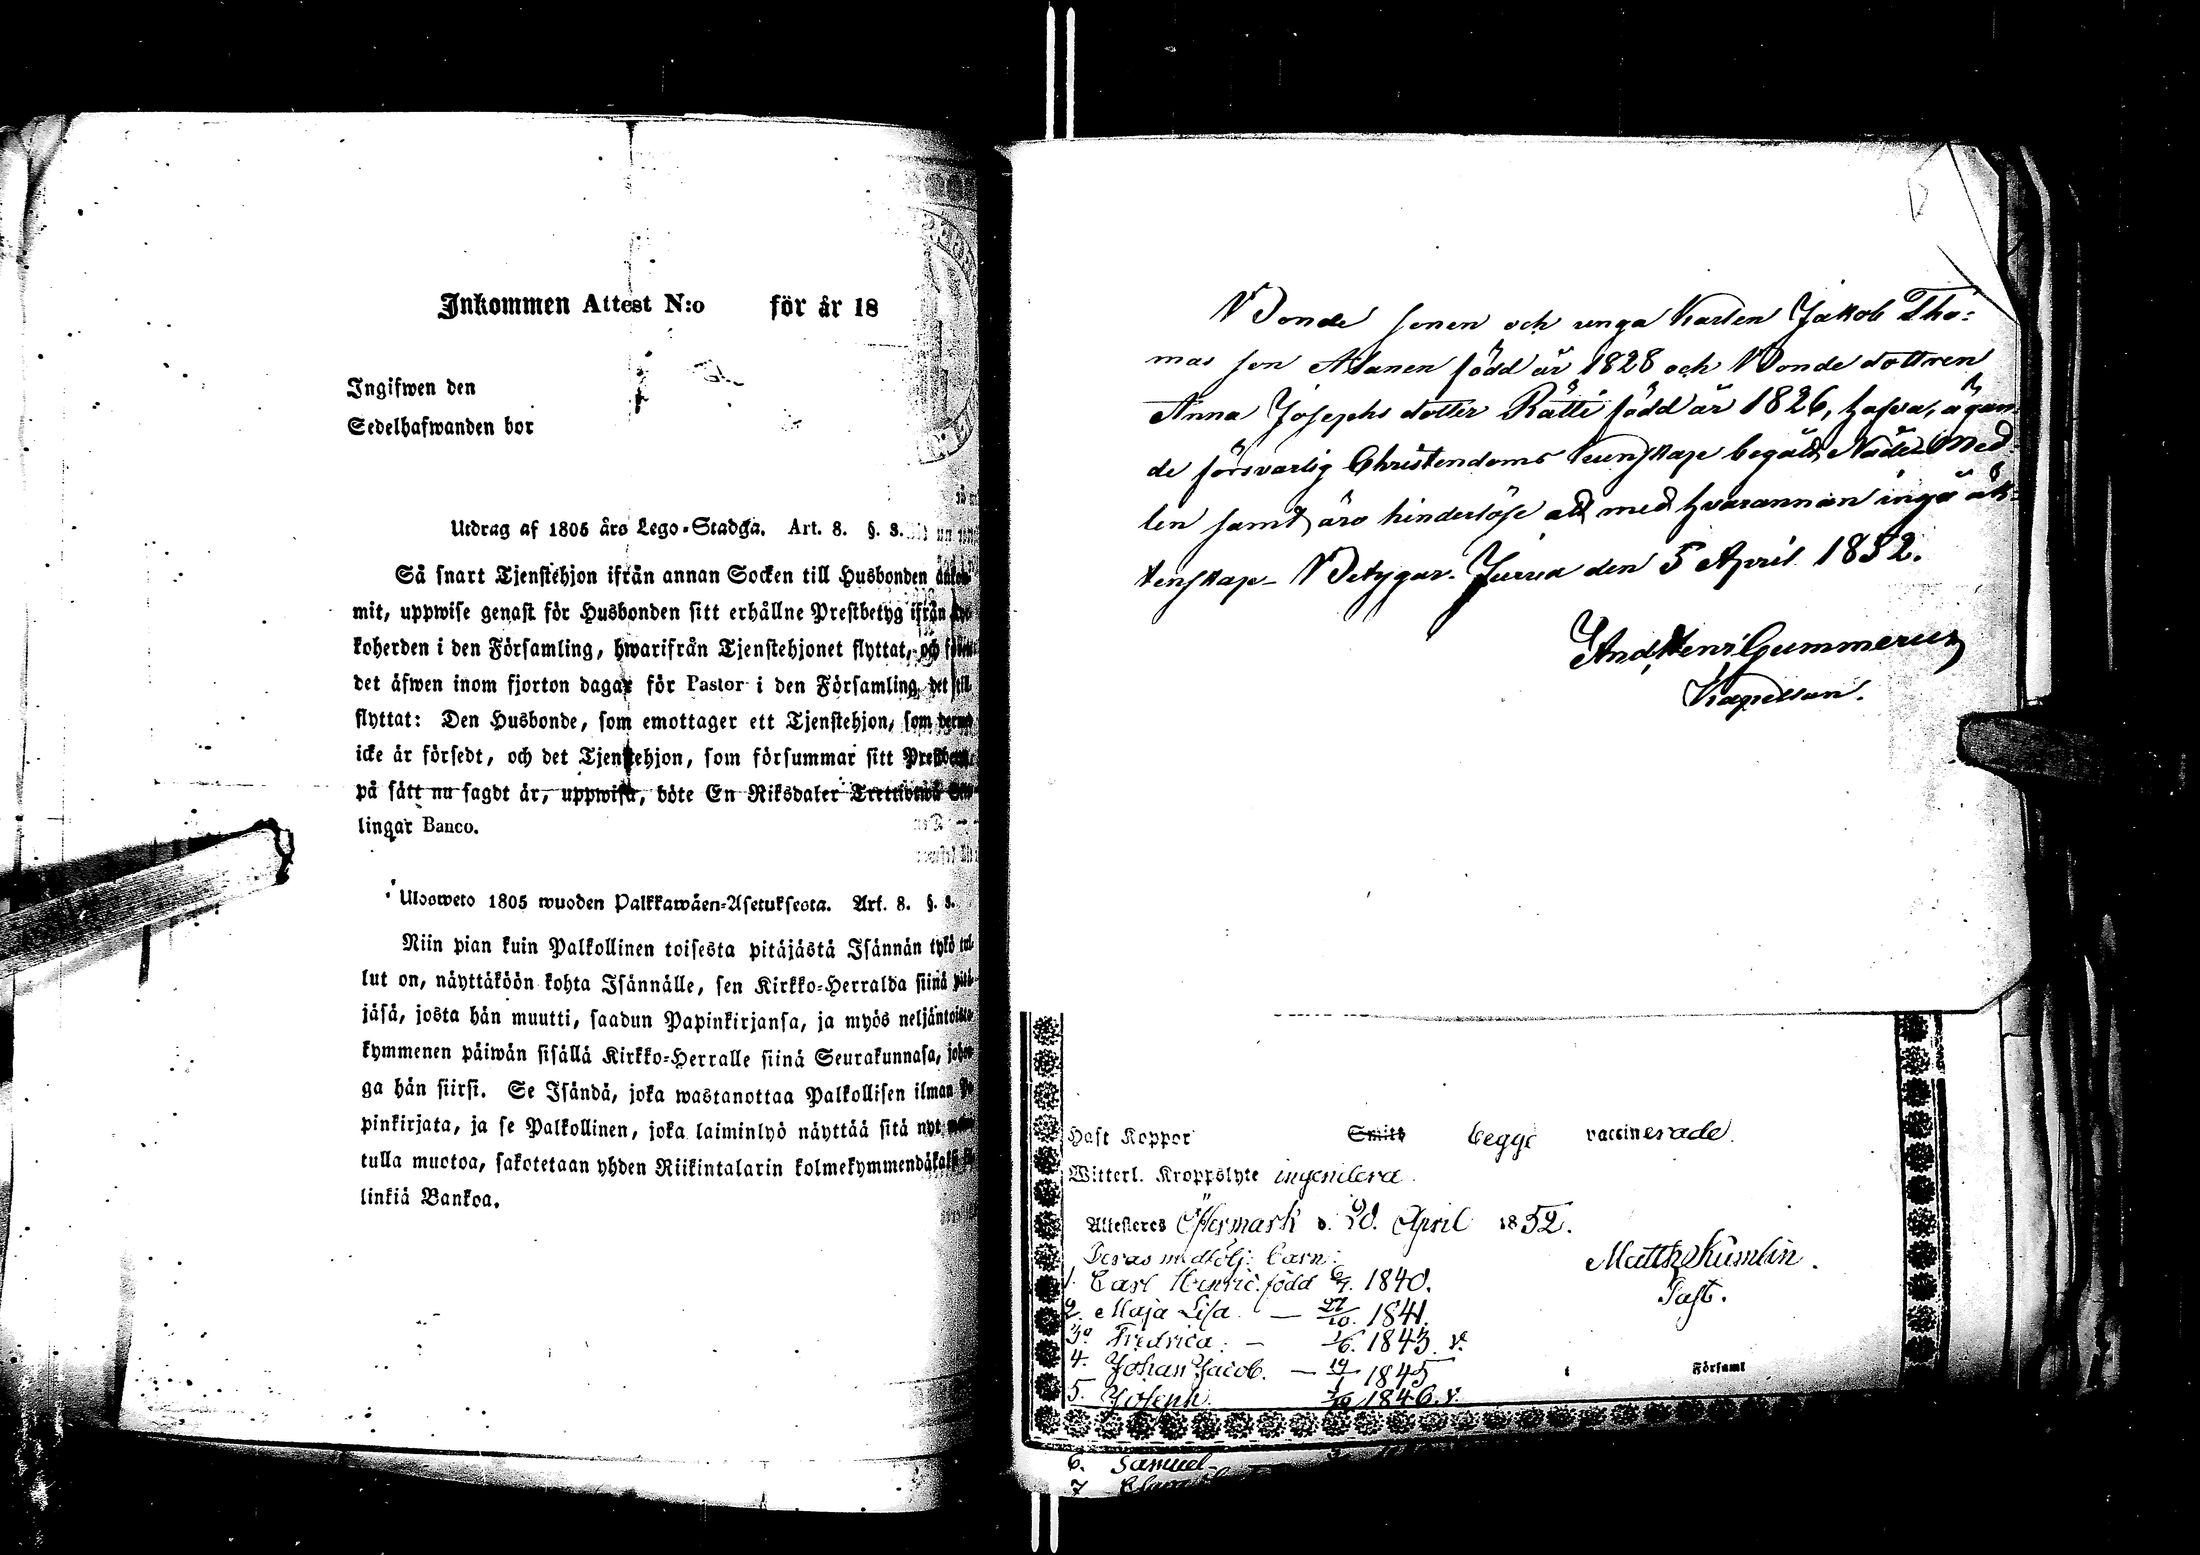 Inkommen Attest N:o för år 18
Ingifwen den
Sedelhafwanden bor
Utdrag af 1805 års Lego-Stadga. Art. 8. §. 3.
Så snart Tjenstehjon ifrån annan Socken till Husbonden
mit, uppwise genast för Husbonden sitt erhållne Prestbetyg ifrån
koherden i den Församling, hwarifrån Tjenstehjonet flyttat, och
det äfwen inom fjorton dagar för Pastor i den Församling, det till
flyttat: Den Husbonde, som emottager ett Tjenstehjon, som
icke är försedt, och det Tjenstehjon, som försummar sitt
på sätt nu sagdt är, uppwisa, böte En Riksdaler
lingar Banco.
Ulosweto 1805 wuoden Palkkawäen-Asetuksesta. Art. 8. §. 3.
Niin pian kuin Palkollinen toisesta pitäjästä Isännän tykö tul-
lut on, näyttäköön kohta Isännälle, sen Kirkko-Herralda siinä pitä-
jäsä, josta hän muutti, saadun Papinkirjansa, ja myös neljäntoista-
kymmenen päiwän sisällä Kirkko-Herralle siinä Seurakunnasa, johon-
ga hän siirsi. Se Isändä, joka wastanottaa Palkollisen ilman Pa-
pinkirjata, ja se Palkollinen, joka laiminlyö näyttää sitä nyt
tulla muotoa, sakotetaan yhden Riikintalarin
linkiä Bankoa.
Bonde sonen och unga Karlen Jakob Tho-
mas son Alanen född år 1828 och Bonde dottren
Anna Josephs dotter Rätti född år 1826, hafva, ägan-
de försvarlig Christendoms Kunskap begått Nådes med-
len samt äro hinderlöse att med hvarannan ingå äk-
tenskap. Betygar. Jurva den 5 April 1852.
And. Henr. Gummerus
Kapellan.
Haft Koppor Smitt begge vaccinerade.
Witterl. Kroppslyte ingendera.
Attesteras Öfvermark d. 20. April 1852.
Deras medfölj. barn:
Matth. Kumlin.
Past.
1. Carl Henric. född 6/7. 1840.
2. Maja Lisa. — 27/10. 1841.
3. Fredrica. — 1/6. 1843. v.
4. Johan Jacob. — 19/1 1845
5. Joseph. 1846. v.
Församl
6. Samuel
7